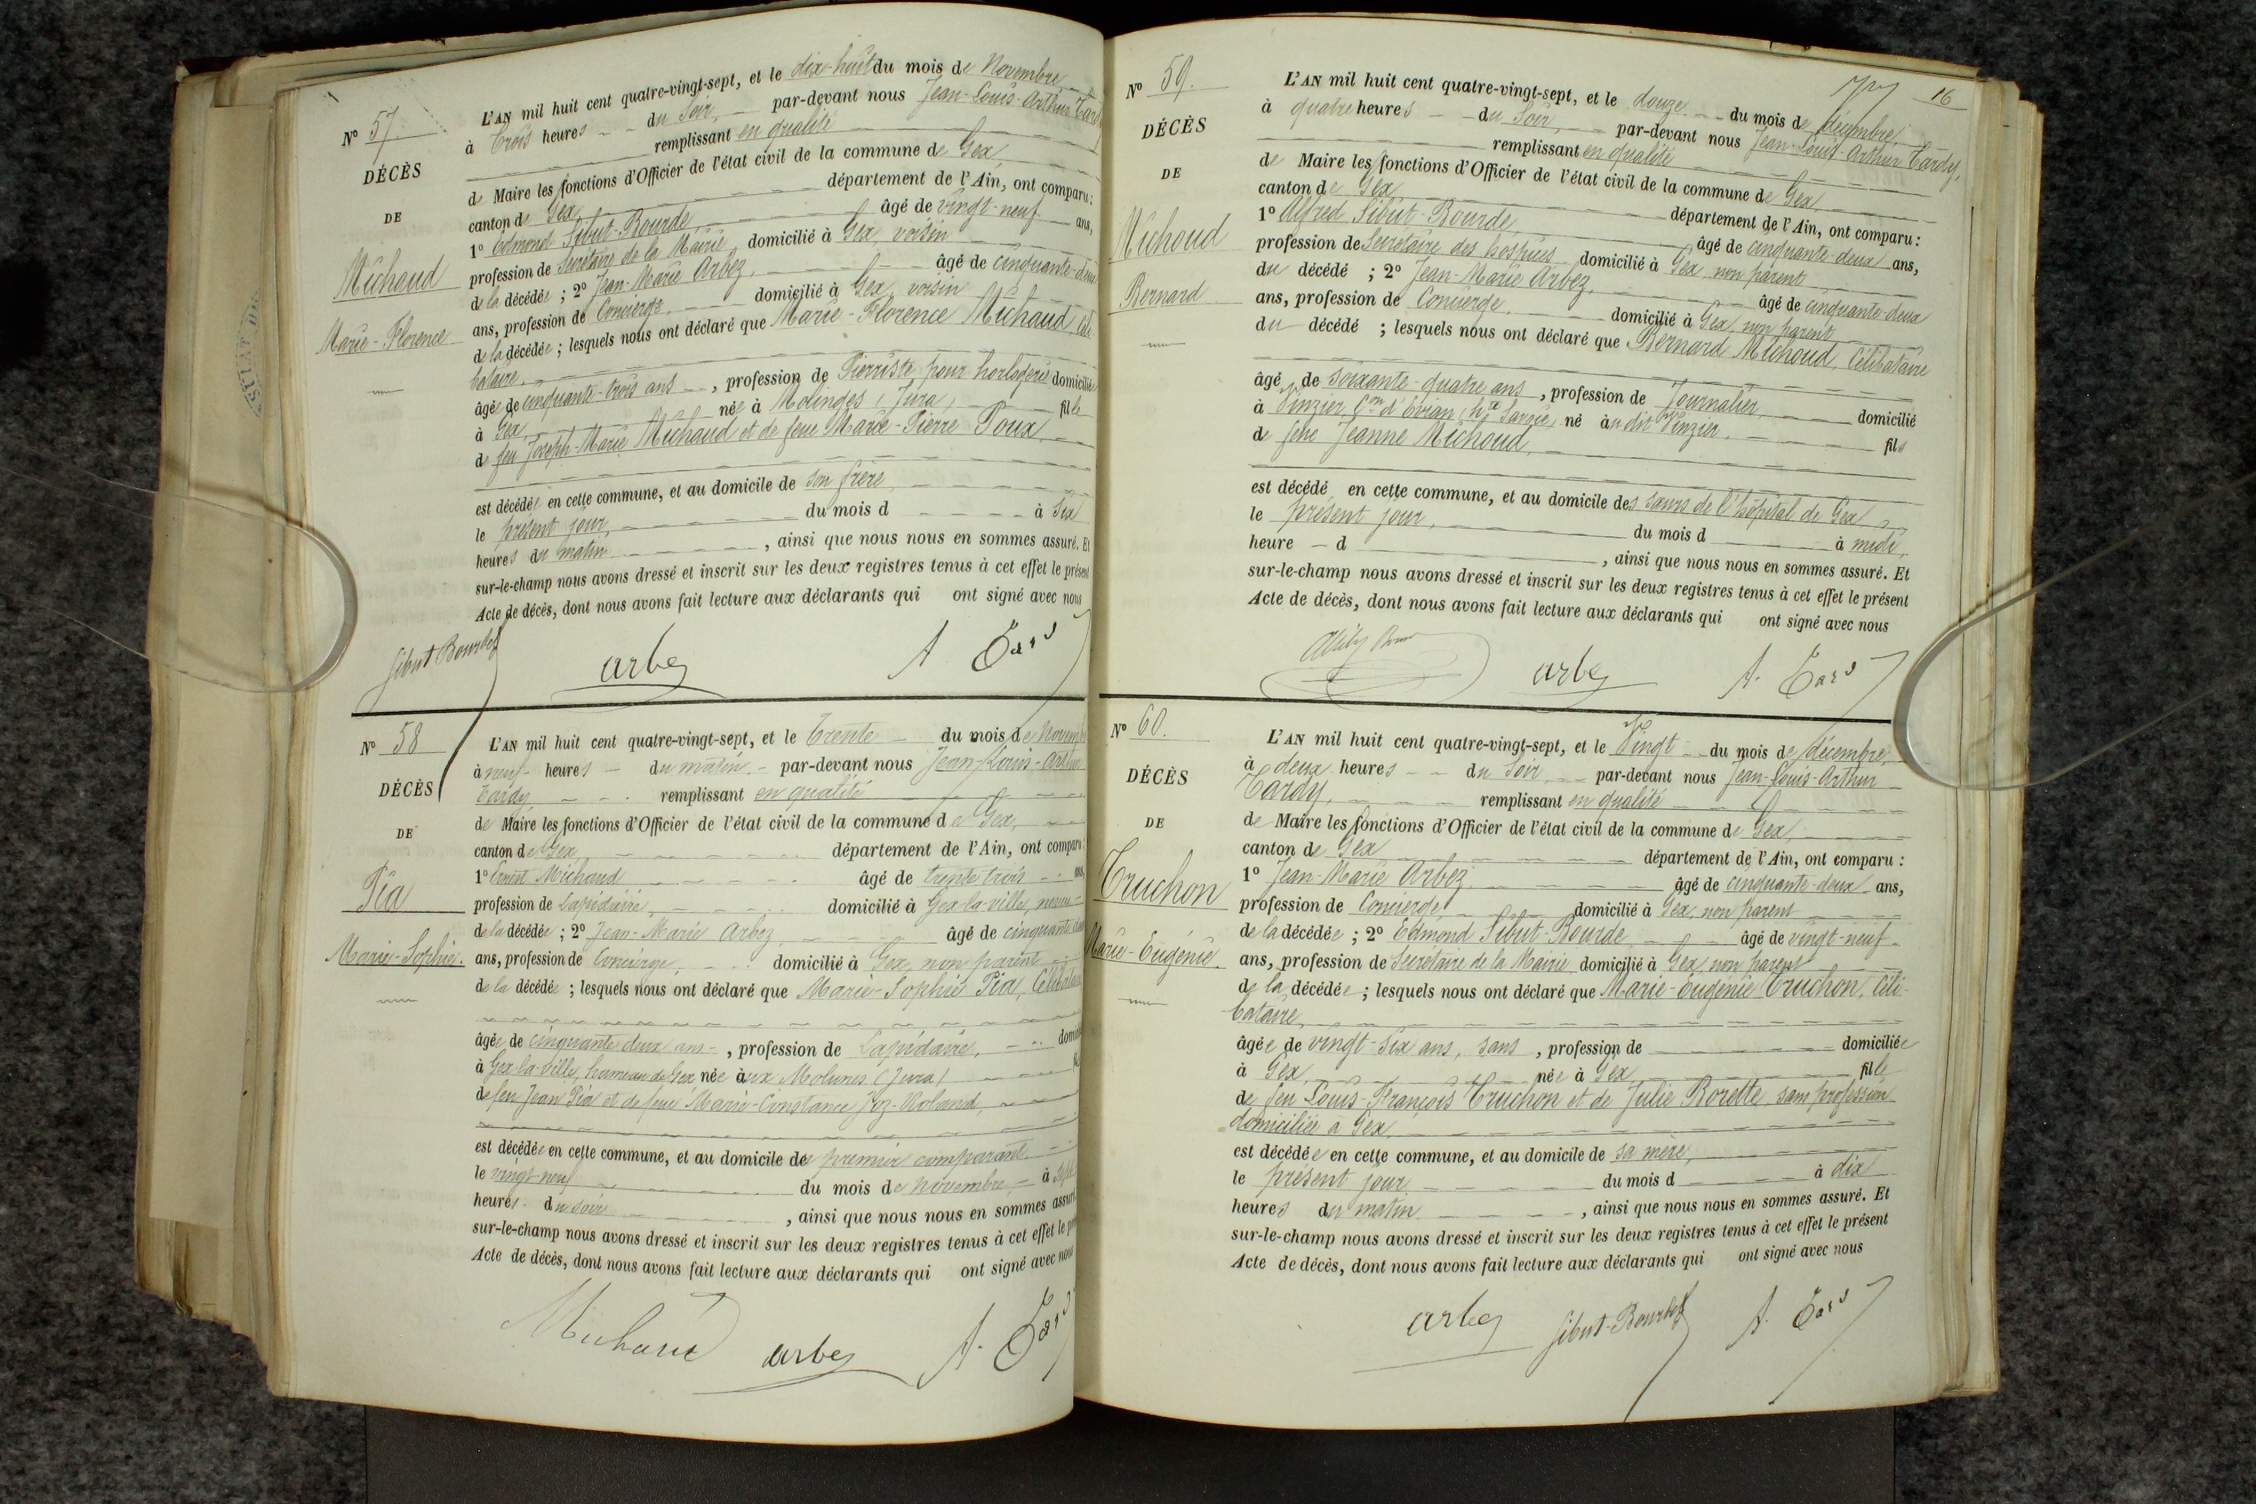 N° 57
DÉCÈS
DE
Michaud
Marie-Florence
L'AN mil huit cent quatre-vingt-sept, et le dix-huit du mois de Novembre
à Trois heures du Soir, par-devant nous Jean-Louis-Arthur Tardy
remplissant en qualité
de Maire les fonctions d'Officier de l'état civil de la commune de Gex,
canton de Gex, département de l'Ain, ont comparu :
1° Edmond Sibut-Bourde, âgé de vingt-neuf ans,
profession de Secrétaire de la Mairie domicilié à Gex, voisin
de la décédée ; 2° Jean-Marie Arbez, âgé de cinquante-deux
ans, profession de Concierge, domicilié à Gex, voisin
de la décédée ; lesquels nous ont déclaré que Marie-Florence Michaud, Céli-
bataire,
âgée de cinquante-trois ans, profession de Pierriste pour horlogerie domiciliée
à Gex, née à Molinges (Jura) fille
de feu Joseph-Marie Michaud et de feue Marie-Pierre Poux,
est décédée en cette commune, et au domicile de son frère,
le présent jour, du mois d à six
heures du matin, ainsi que nous nous en sommes assuré. Et
sur-le-champ nous avons dressé et inscrit sur les deux registres tenus à cet effet le présent
Acte de décès, dont nous avons fait lecture aux déclarants qui ont signé avec nous
Sibut Bourde arbez A Tardy
N° 58
DÉCÈS
DE
Pia
Marie-Sophie.
L'AN mil huit cent quatre-vingt-sept, et le Trente du mois de Novembre
à neuf heures du matin par-devant nous Jean-Louis-Arthur
Tardy, remplissant en qualité
de Maire les fonctions d'Officier de l'état civil de la commune de Gex,
canton de Gex département de l'Ain, ont comparu :
1° Ernest Michaud âgé de trente trois ans,
profession de Lapidaire, domicilié à Gex-la-ville, neveu
de la décédée ; 2° Jean-Marie Arbez, âgé de cinquante-deux
ans, profession de Concierge, domicilié à Gex, non parent
de la décédée ; lesquels nous ont déclaré que Marie-Sophie Pia, Célibataire
âgée de cinquante deux ans, profession de Lapidaire, domi
à Gex-la-ville, hameau de Gex née aux Molunes (Jura) fi
de feu Jean Pia et de feue Marie-Constance Joz-Roland,
est décédée en cette commune, et au domicile de premier comparant
le vingt-neuf du mois de novembre à sept
heures du soir, ainsi que nous nous en sommes assuré.
sur-le-champ nous avons dressé et inscrit sur les deux registres tenus à cet effet le pr
Acte de décès, dont nous avons fait lecture aux déclarants qui ont signé avec nous
Michaud arbez A. Tardy
16
N° 59.
DÉCÈS
DE
Michoud
Bernard
L'AN mil huit cent quatre-vingt-sept, et le douze du mois de décembre,
à quatre heures du Soir, par-devant nous Jean-Louis-Arthur Tardy,
remplissant en qualité
de Maire les fonctions d'Officier de l'état civil de la commune de Gex
canton de Gex département de l'Ain, ont comparu :
1° Alfred Sibut-Bourde, âgé de cinquante-deux ans,
profession de Secrétaire des hospices domicilié à Gex non parent
du décédé ; 2° Jean-Marie Arbez, âgé de cinquante-deux
ans, profession de Concierge, domicilié à Gex, non parent
du décédé ; lesquels nous ont déclaré que Bernard Michoud, Célibataire
âgé de soixante-quatre ans, profession de Journalier, domicilié
à Vinzier, Con d'Evian (hte Savoie) né audit Vinzier, fils
de feue Jeanne Michoud,
est décédé en cette commune, et au domicile des sœurs de l'hôpital de Gex
le présent jour, du mois d à midi,
heure d, ainsi que nous nous en sommes assuré. Et
sur-le-champ nous avons dressé et inscrit sur les deux registres tenus à cet effet le présent
Acte de décès, dont nous avons fait lecture aux déclarants qui ont signé avec nous
arbez A. Tardy
N° 60.
DÉCÈS
DE
Truchon
Marie-Eugénie.
L'AN mil huit cent quatre-vingt-sept, et le Vingt du mois de décembre,
à deux heures du Soir par-devant nous Jean-Louis-Arthur
Tardy, remplissant en qualité
de Maire les fonctions d'Officier de l'état civil de la commune de Gex,
canton de Gex département de l'Ain, ont comparu :
1° Jean-Marie Arbez âgé de cinquante-deux ans,
profession de Concierge, domicilié à Gex, non parent
de la décédée ; 2° Edmond Sibut-Bourde, âgé de vingt-neuf
ans, profession de Secrétaire de la Mairie domicilié à Gex, non parent
de la décédée ; lesquels nous ont déclaré que Marie-Eugénie Truchon, Céli-
bataire,
âgée de vingt-six ans, sans, profession de domiciliée
à Gex, née à Gex, fille
de feu Louis-François Truchon et de Julie Borette sans profession
domiciliée à Gex,
est décédée en cette commune, et au domicile de sa mère,
le présent jour du mois d à dix
heures du matin, ainsi que nous nous en sommes assuré. Et
sur-le-champ nous avons dressé et inscrit sur les deux registres tenus à cet effet le présent
Acte de décès, dont nous avons fait lecture aux déclarants qui ont signé avec nous
arbez Sibut-Bourde A. Tardy